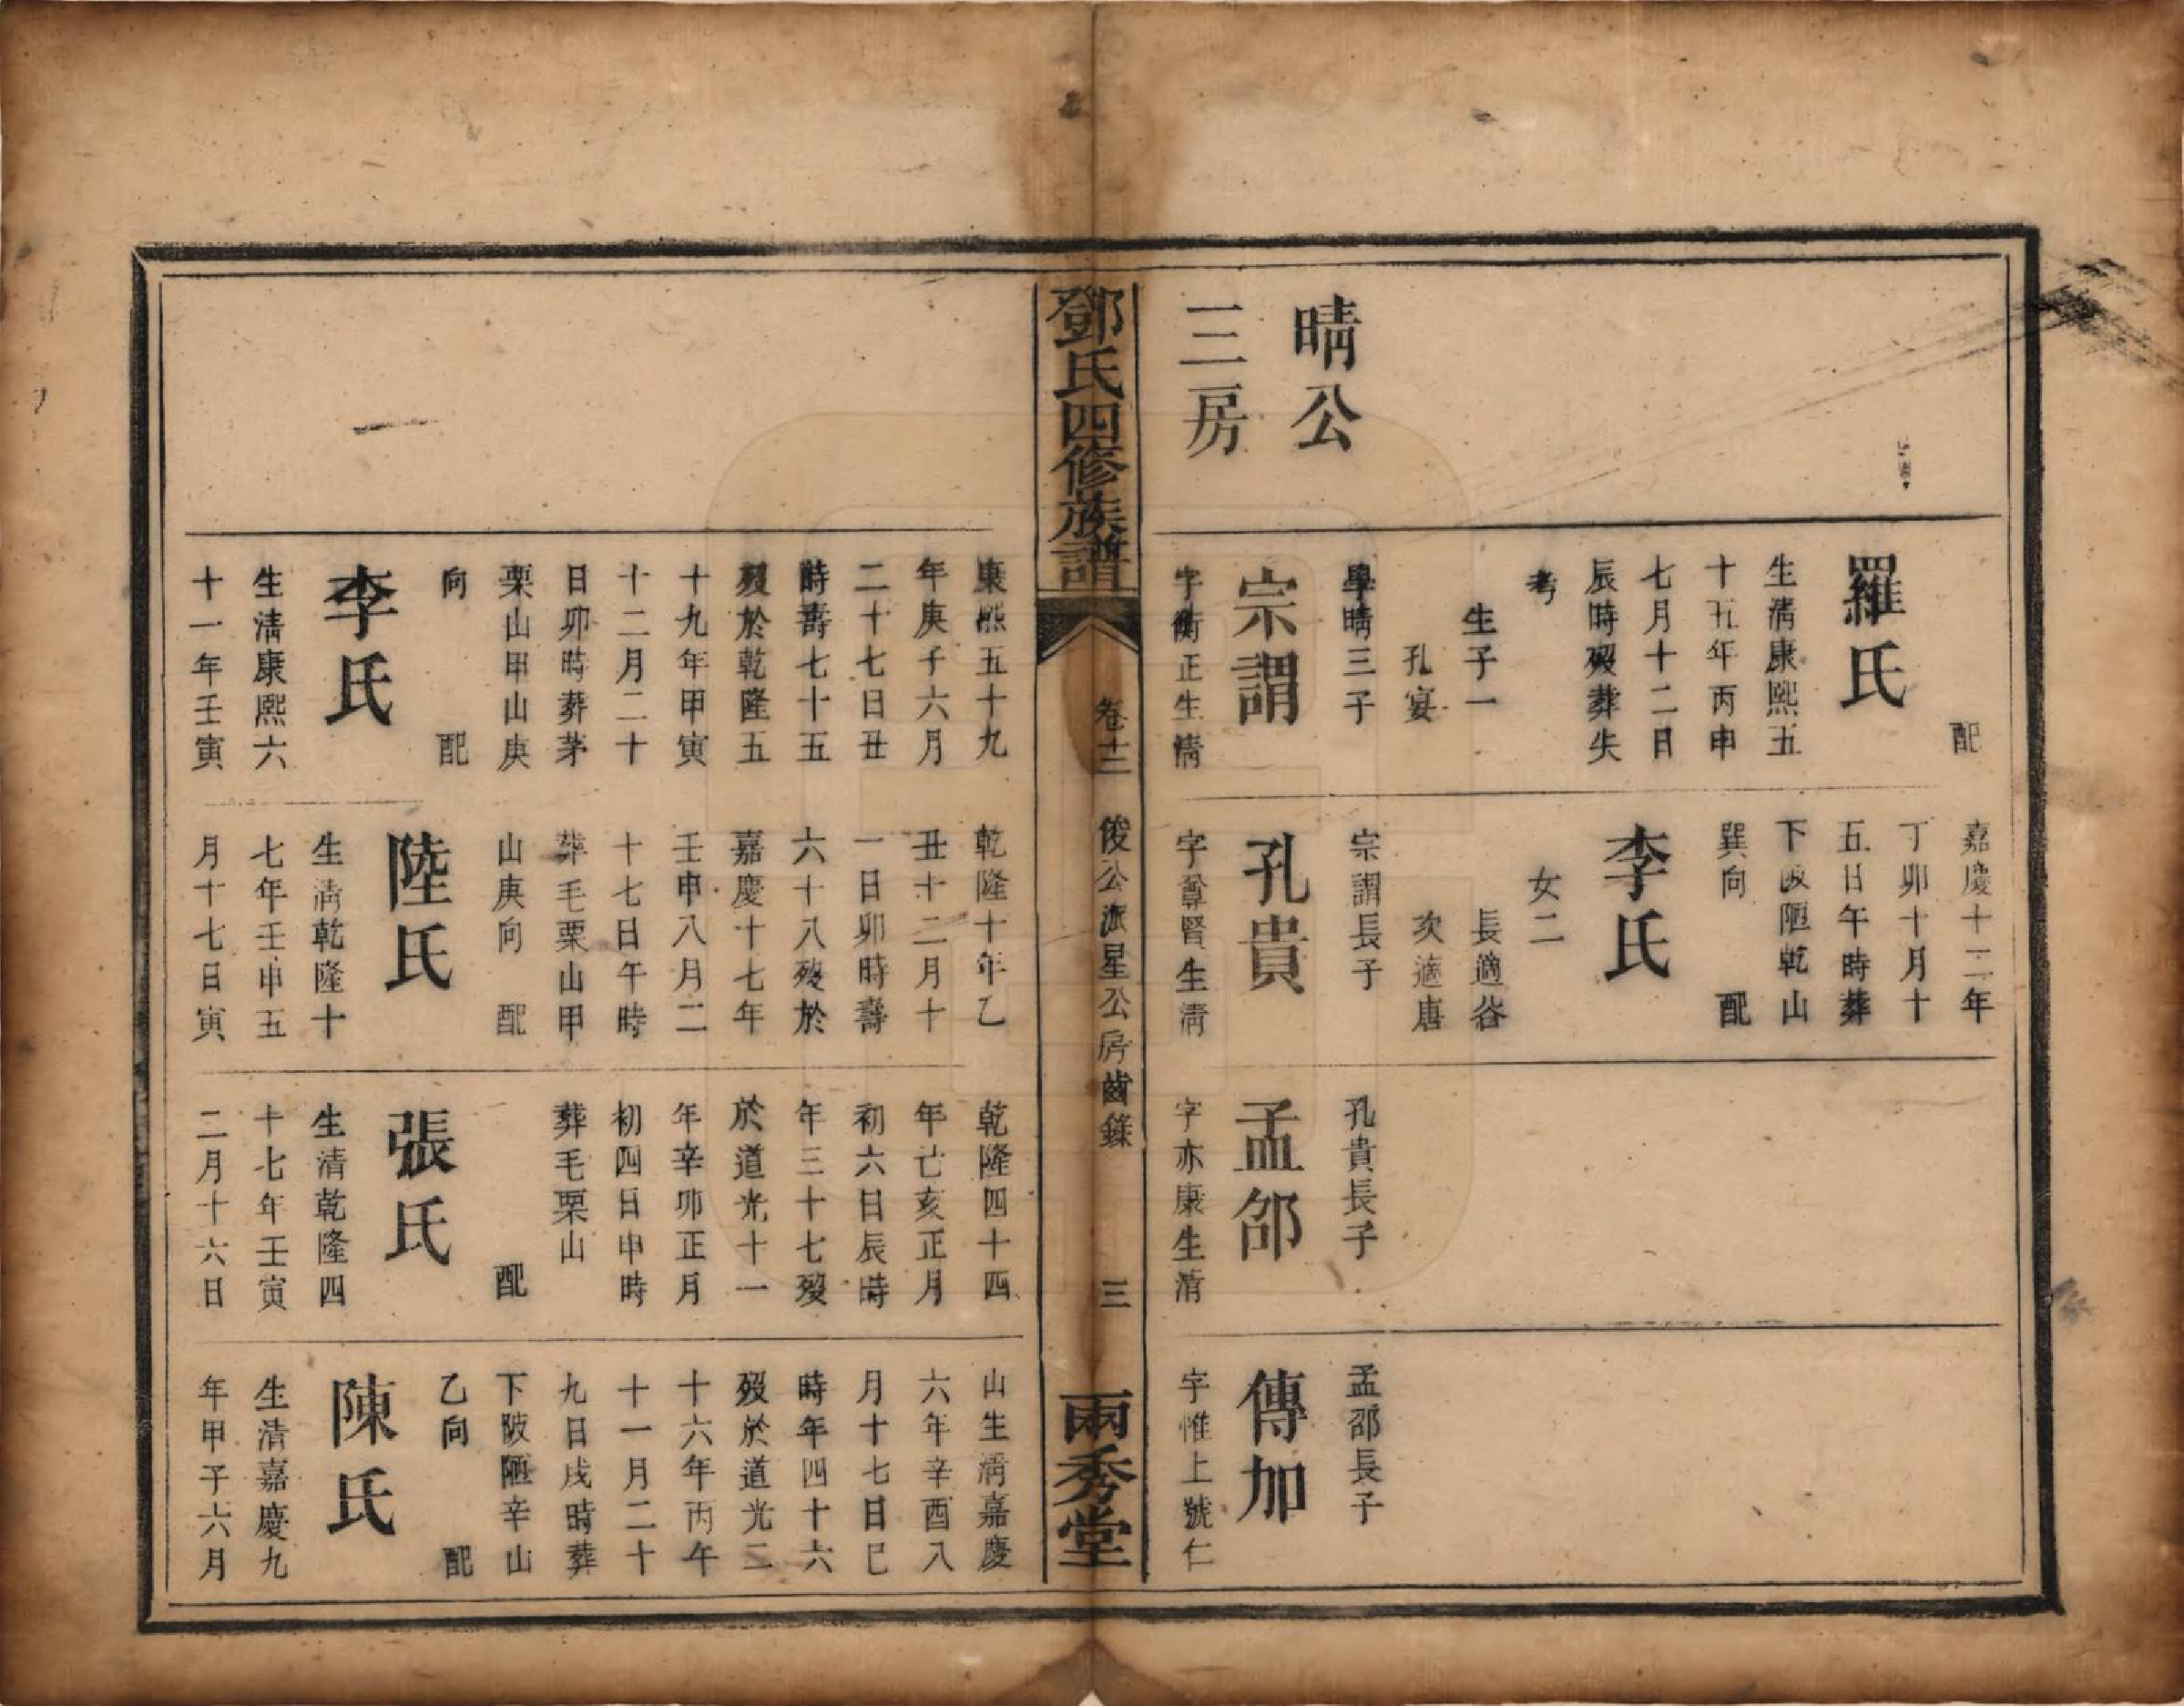 晴公
三房
配
羅氏
生清康熙五
十五年丙申
七月十二日
辰時歿葬失
考
生子一
孔宴
學晴三子
宗謂
字衡正生清
嘉慶十二年
丁卯十月十
五日午時葬
下陂陋乾山
巽向　配
李氏
女二
長適谷
次適唐
宗謂長子
孔貴
字尊賢生清
孔貴長子
孟邵
字亦康生清
孟邵長子
傳加
字惟上號仁
鄧氏四修族譜
卷十二
俊公派星公房齒錄
三
兩秀堂
康熙五十九
年庚子六月
二十七日丑
時壽七十五
歿於乾隆五
十九年甲寅
十二月二十
日卯時葬茅
栗山甲山庚
向　配
李氏
生清康熙六
十一年壬寅
乾隆十年乙
丑十二月十
一日卯時壽
六十八歿於
嘉慶十七年
壬申八月二
十七日午時
葬毛栗山甲
山庚向　配
陸氏
生清乾隆十
七年壬申五
月十七日寅
乾隆四十四
年己亥正月
初六日辰時
年三十七歿
於道光十一
年辛卯正月
初四日申時
葬毛栗山
配
張氏
生清乾隆四
十七年壬寅
二月十六日
山生清嘉慶
六年辛酉八
月十七日巳
時年四十六
歿於道光二
十六年丙午
十一月二十
九日戌時葬
下陂陋辛山
乙向　配
陳氏
生清嘉慶九
年甲子六月